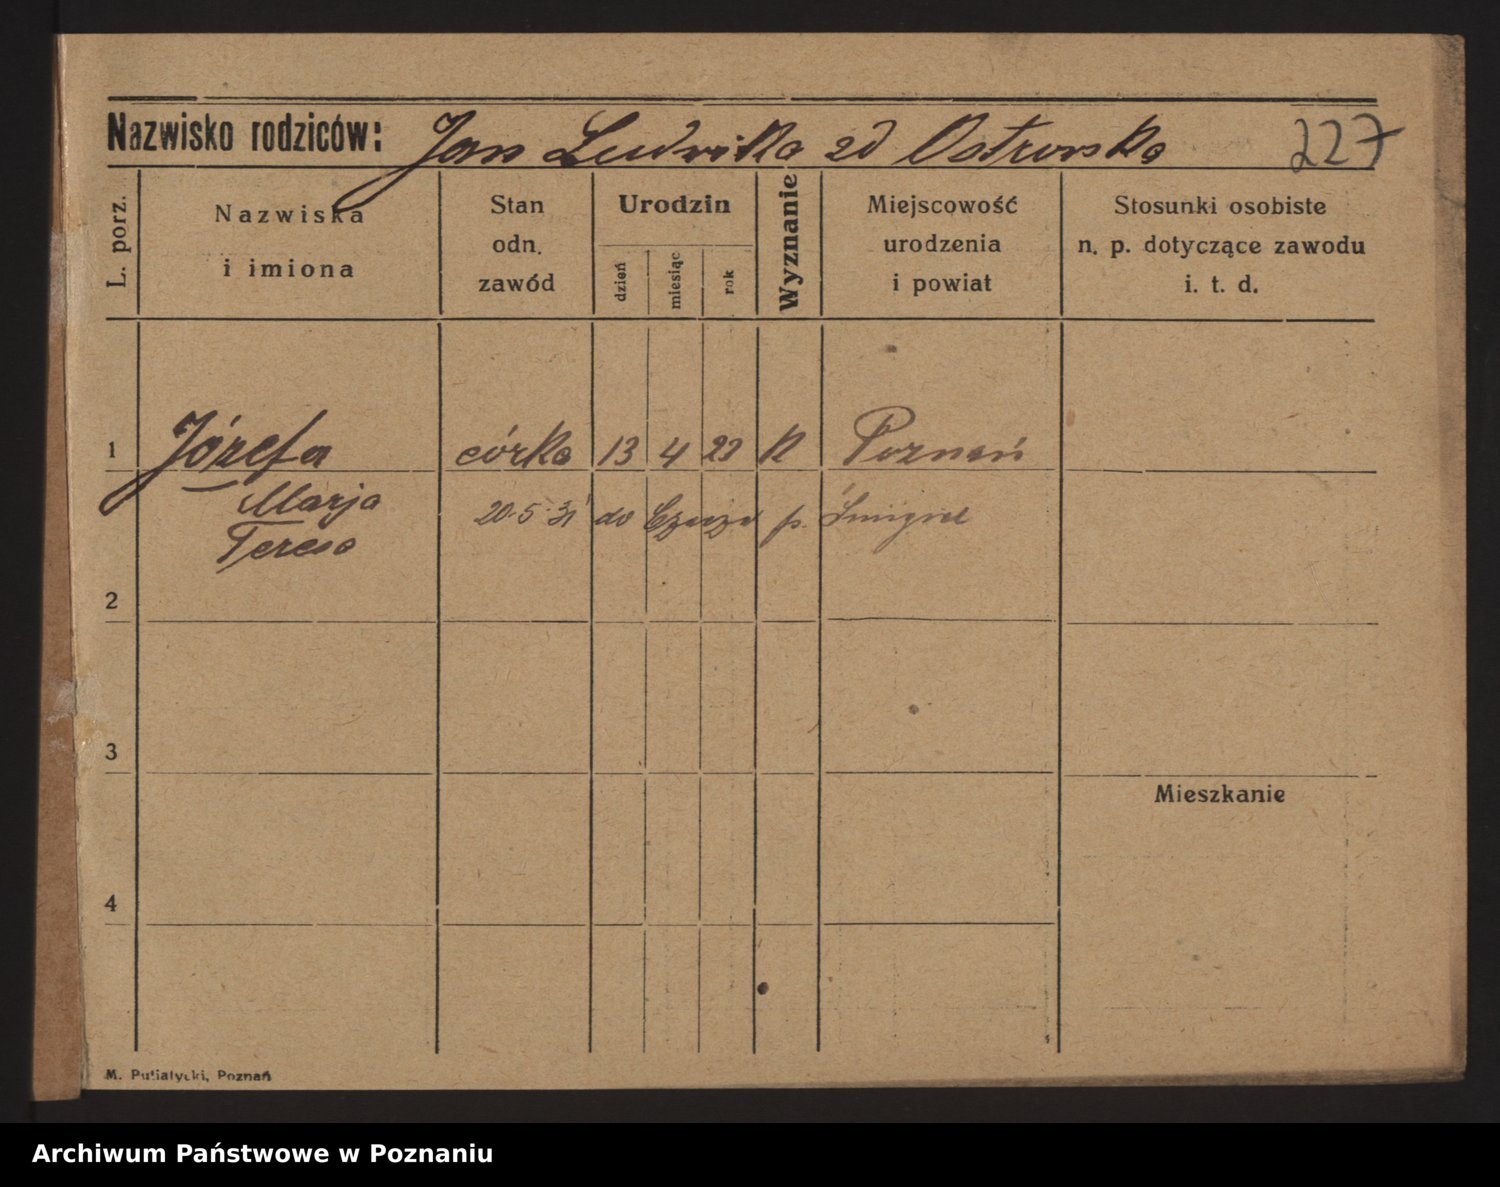 Nazwisko rodziców: Jan Ludwika zd Ostrowska 227
L. porz. Nazwiska i imiona Stan odn. zawód Urodzin dzień miesiąc rok Wyznanie Miejscowość urodzenia i powiat Stosunki osobiste n. p. dotyczące zawodu i. t. d.
1 Józefa córka 13 4 23 K Poznań
Marja 20.5.31 do p. Śmigiel
Teresa
2
3
Mieszkanie
4
M. Putiatycki, Poznań
Archiwum Państwowe w Poznaniu